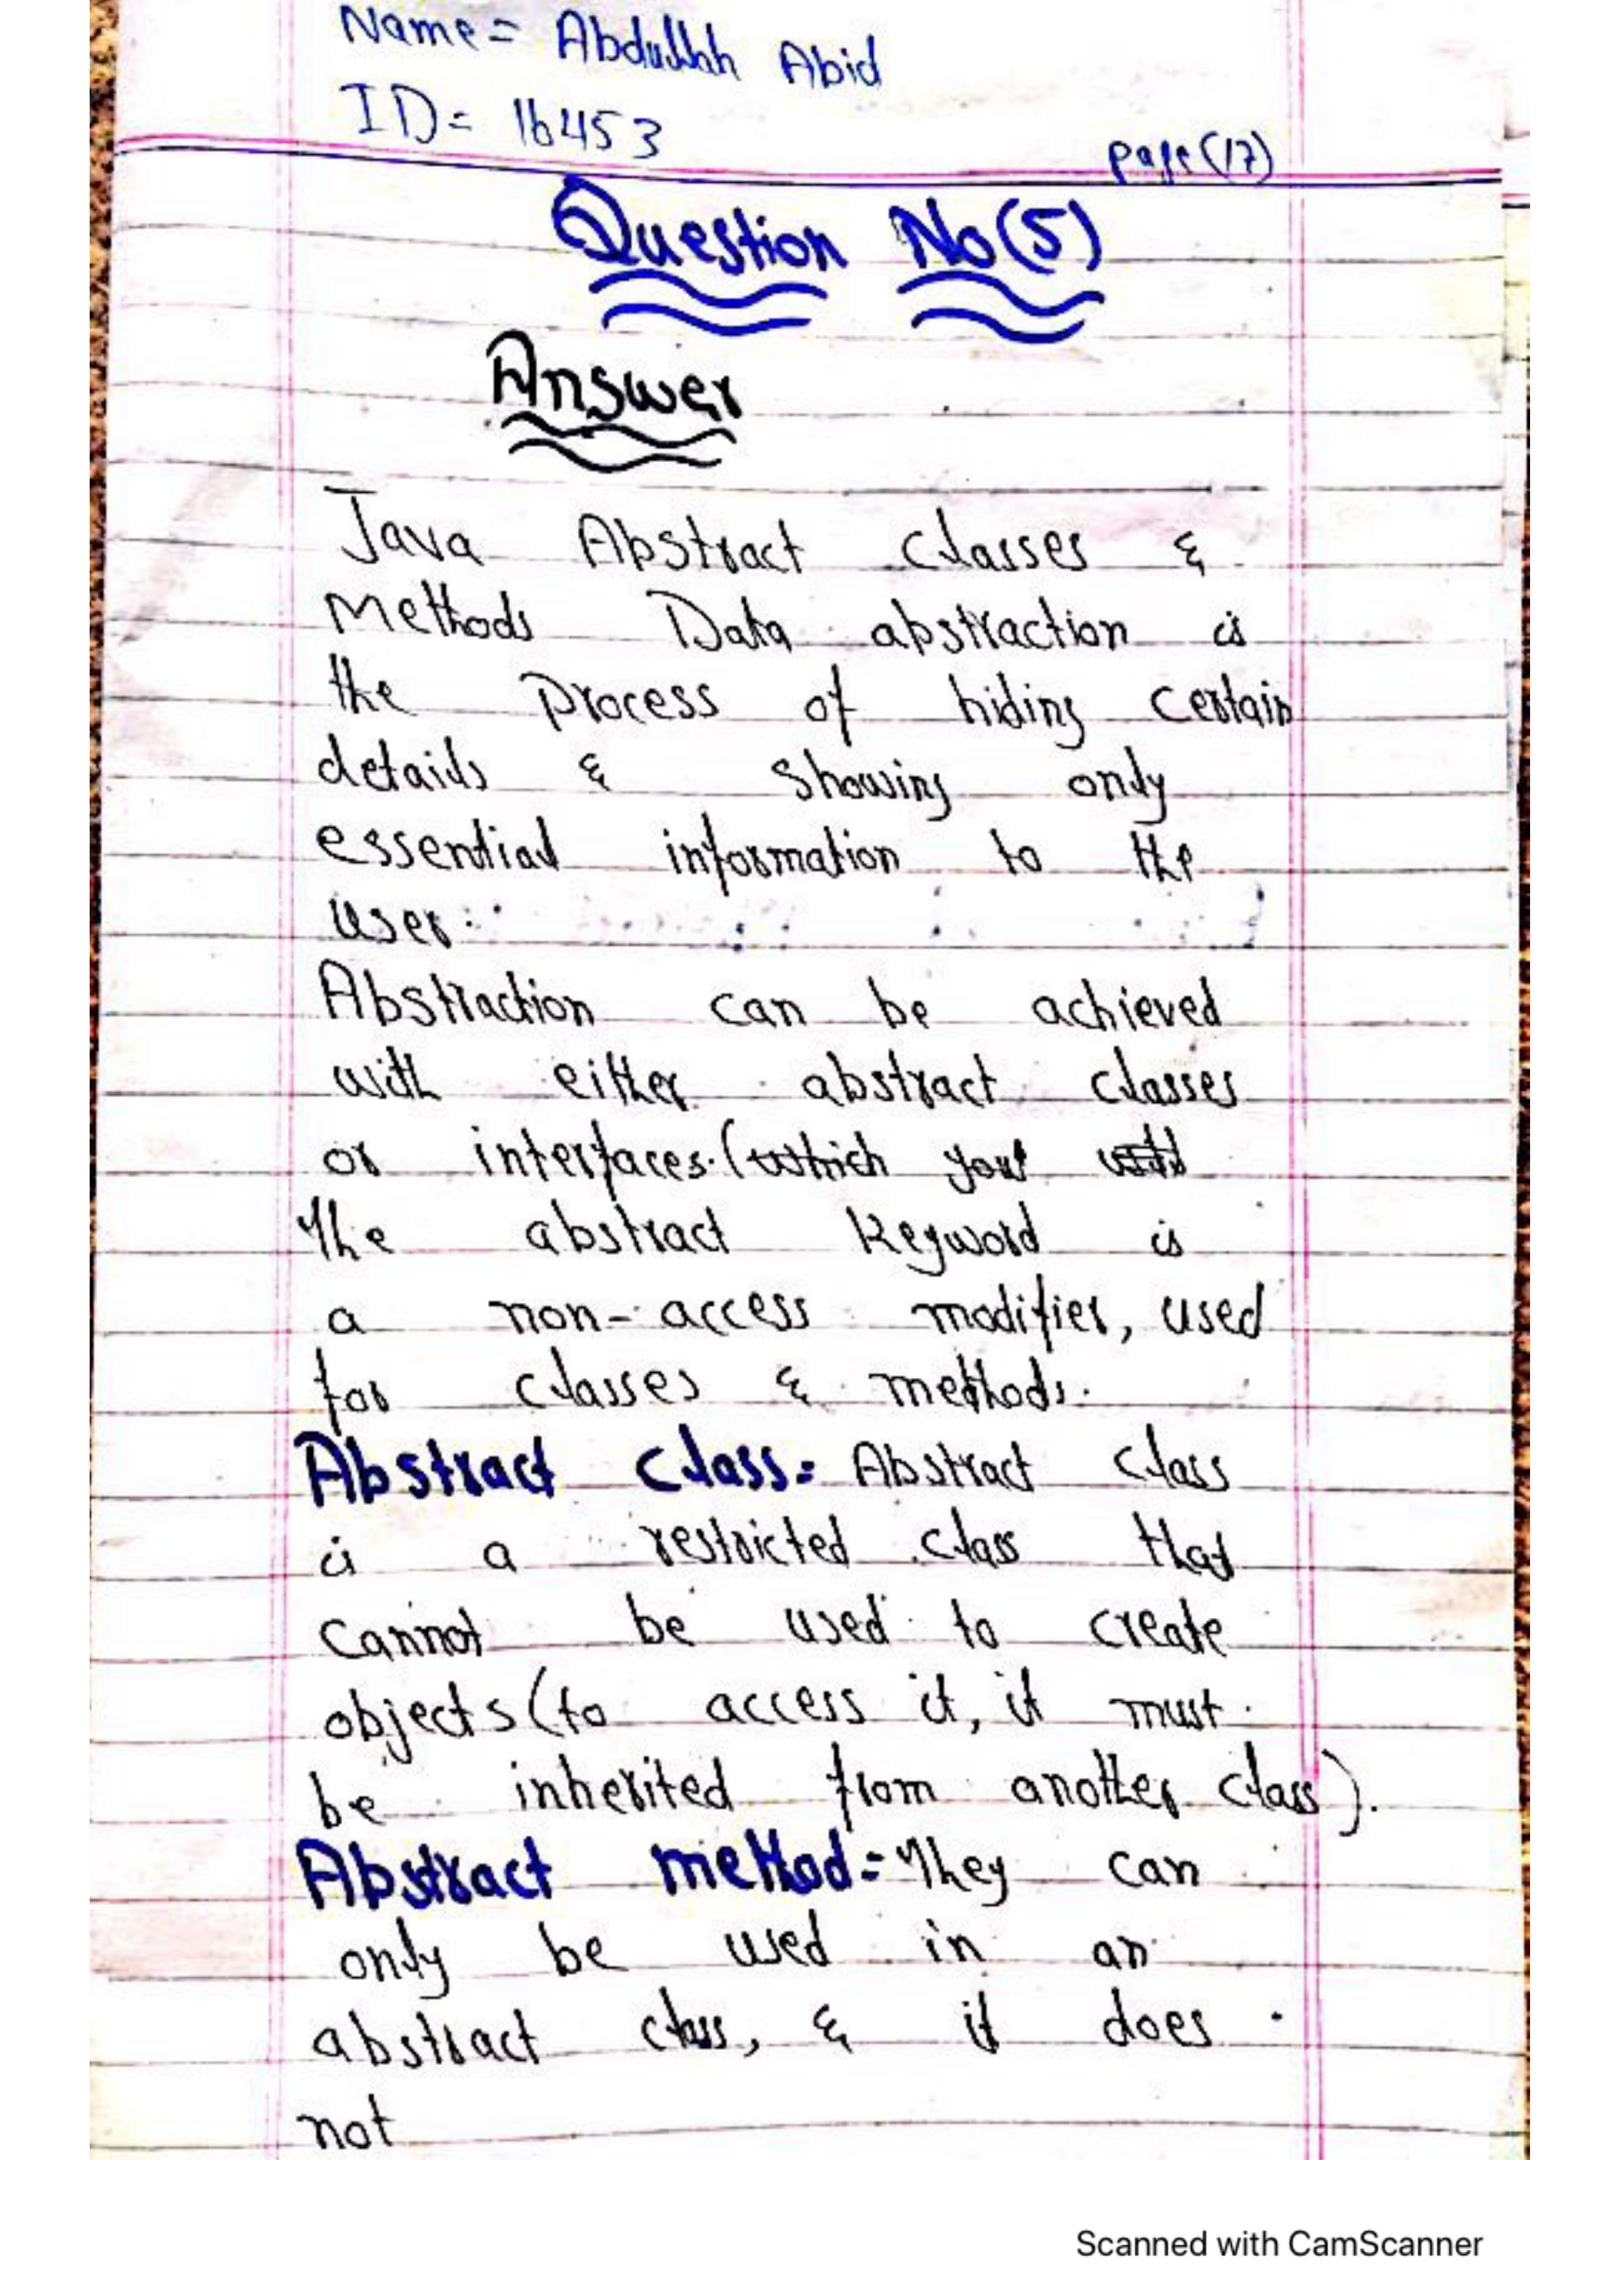 Name= Abdullah Abid
ID= 16453
page(17)
Question No(5)
Answer
Java Abstract classes &
Methods Data abstraction is
the Process of hiding certain
details & showing only
essential information to the
user.
Abstraction can be achieved
with either abstract classes
or interfaces. (which you will
The abstract Keyword is
a non-access modifier, used
for classes & methods.
Abstract class= Abstract class
is a restricted class that
cannot be used to create
objects (to access it, it must
be inherited from another class).
Abstract method= They can
only be used in an
abstract class, & it does
not
Scanned with CamScanner